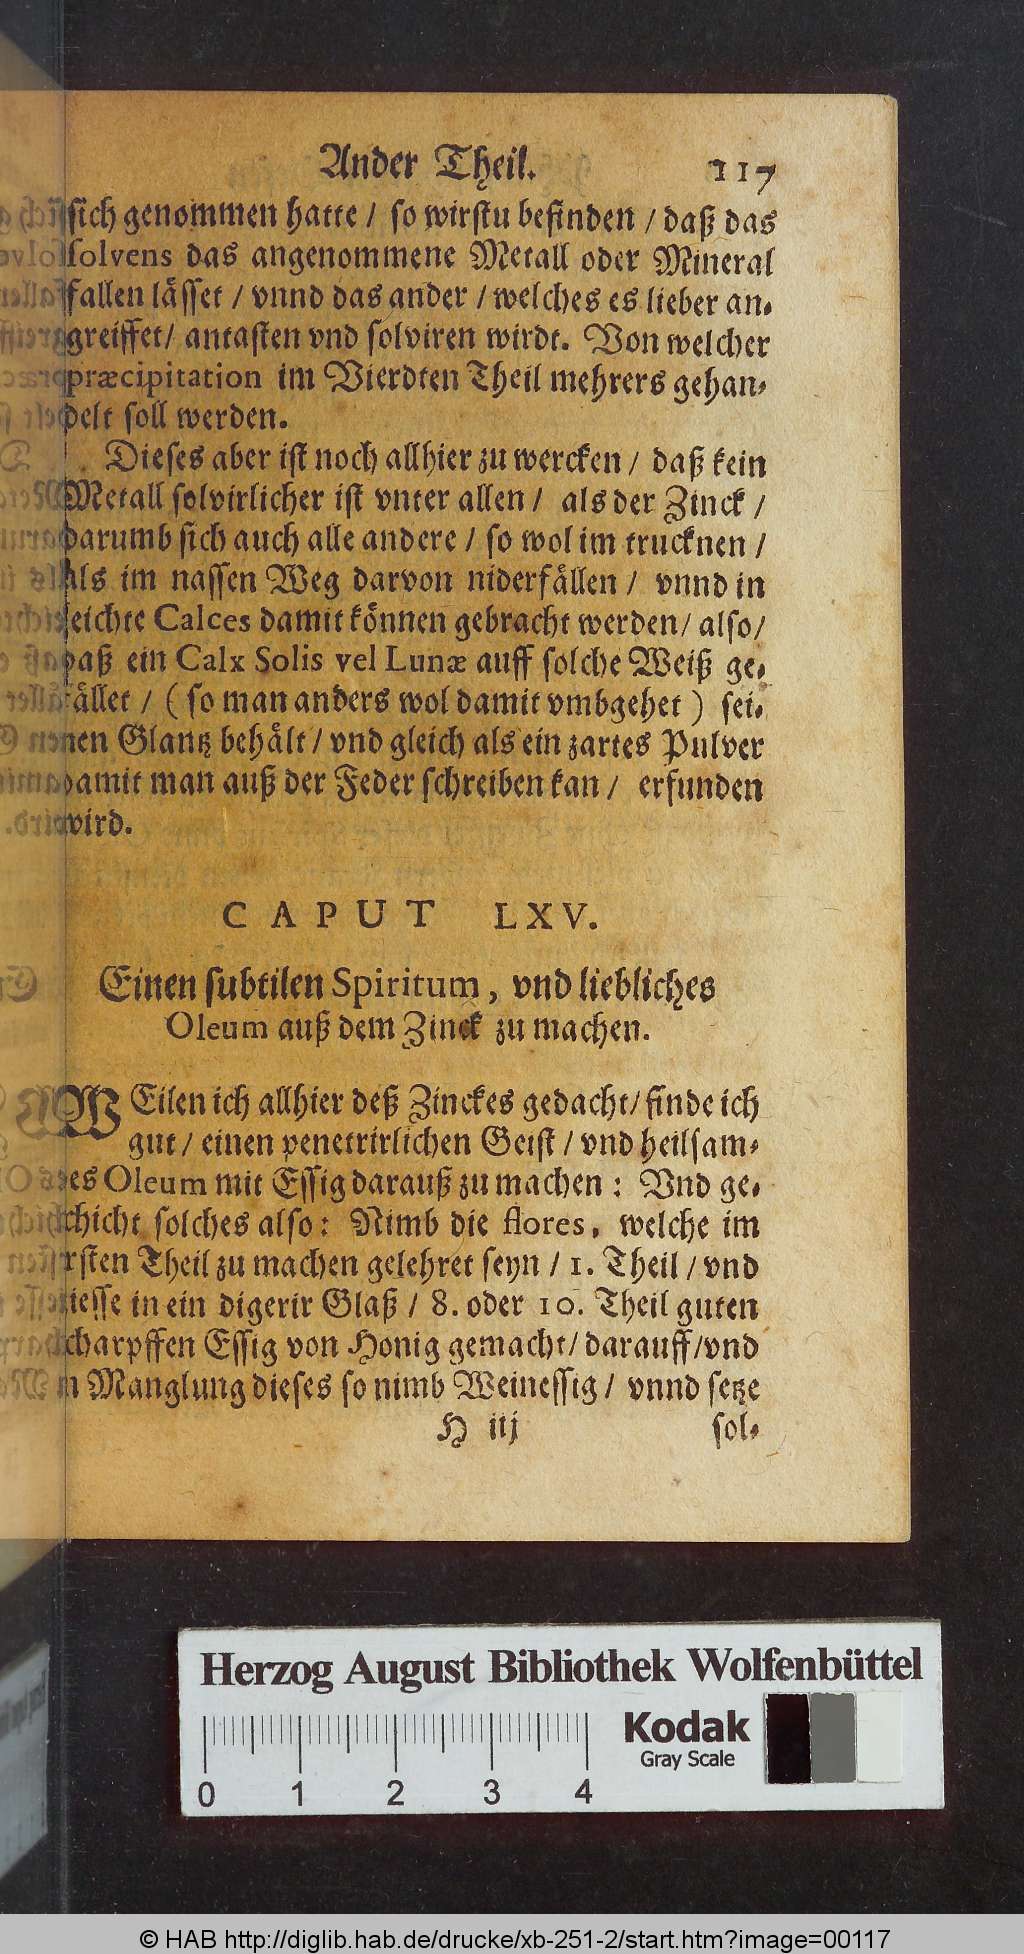 Ander Theil. 117
sich genommen hatte / so wirstu befinden / daß das
solvens das angenommene Metall oder Mineral
fallen lässet / vnnd das ander / welches es lieber an-
greiffet / antasten vnd solviren wirdt. Von welcher
præcipitation im Vierdten Theil mehrers gehan-
delt soll werden.
Dieses aber ist noch allhier zu wercken / daß kein
Metall solvirlicher ist vnter allen / als der Zinck /
darumb sich auch alle andere / so wol im trucknen /
als im nassen Weg darvon niderfällen / vnnd in
leichte Calces damit können gebracht werden / also /
daß ein Calx Solis vel Lunæ auff solche Weiß ge-
fället / ( so man anders wol damit vmbgehet ) sei-
nen Glantz behält / vnd gleich als ein zartes Pulver
damit man auß der Feder schreiben kan / erfunden
wird.
CAPUT LXV.
Einen subtilen Spiritum, vnd liebliches
Oleum auß dem Zinck zu machen.
WEilen ich allhier deß Zinckes gedacht / finde ich
gut / einen penetrirlichen Geist / vnd heilsam-
es Oleum mit Essig darauß zu machen : Vnd ge-
schicht solches also : Nimb die flores, welche im
ersten Theil zu machen gelehret seyn / 1. Theil / vnd
giesse in ein digerir Glaß / 8. oder 10. Theil guten
scharpffen Essig von Honig gemacht / darauff / vnd
in Manglung dieses so nimb Weinessig / vnnd setze
H iij sol-
Herzog August Bibliothek Wolfenbüttel
Kodak
Gray Scale
0 1 2 3 4
© HAB http://diglib.hab.de/drucke/xb-251-2/start.htm?image=00117